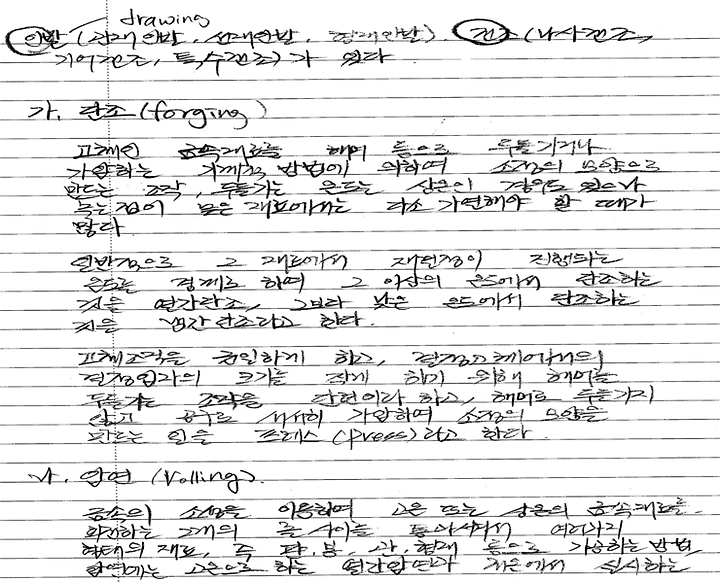 drawing
인발 (관재인발, 선재인발, 형재인발). 전조 (나사전조,
기어전조, 특수전조)가 있다
가. 단조 (forging)
고체인 금속재료를 해머 등으로 두들기거나
가압하는 기계적 방법에 의하여 소정의 모양으로
만드는 조작, 두들기는 온도는 상온의 경우도 있으나
녹는점이 높은 재료에서는 다소 가열해야 할 때가
많다
일반적으로 그 재료에서 재결정이 진행되는
온도를 경계로 하여 그 이상의 온도에서 단조하는
것을 열간단조, 그보다 낮은 온도에서 단조하는
것을 냉간단조라고 한다.
고체조직을 균일하게 하고, 결정고체에서의
결정입자의 크기를 작게 하기 위해 해머로
두들기는 조작을 단련이라 하고, 해머로 두들기지
않고 공구로 서서히 가압하여 소정의 모양을
만드는 일을 프레스 (press)라고 한다.
나. 압연 (rolling).
금속의 소성을 이용하여 고온 또는 상온의 금속재료를
회전하는 2개의 롤 사이를 통과시켜서 여러가지
형태의 재료, 즉 판, 봉, 관, 형재 등으로 가공하는 방법,
압연에는 고온으로 하는 열간압연과 저온에서 실시하는